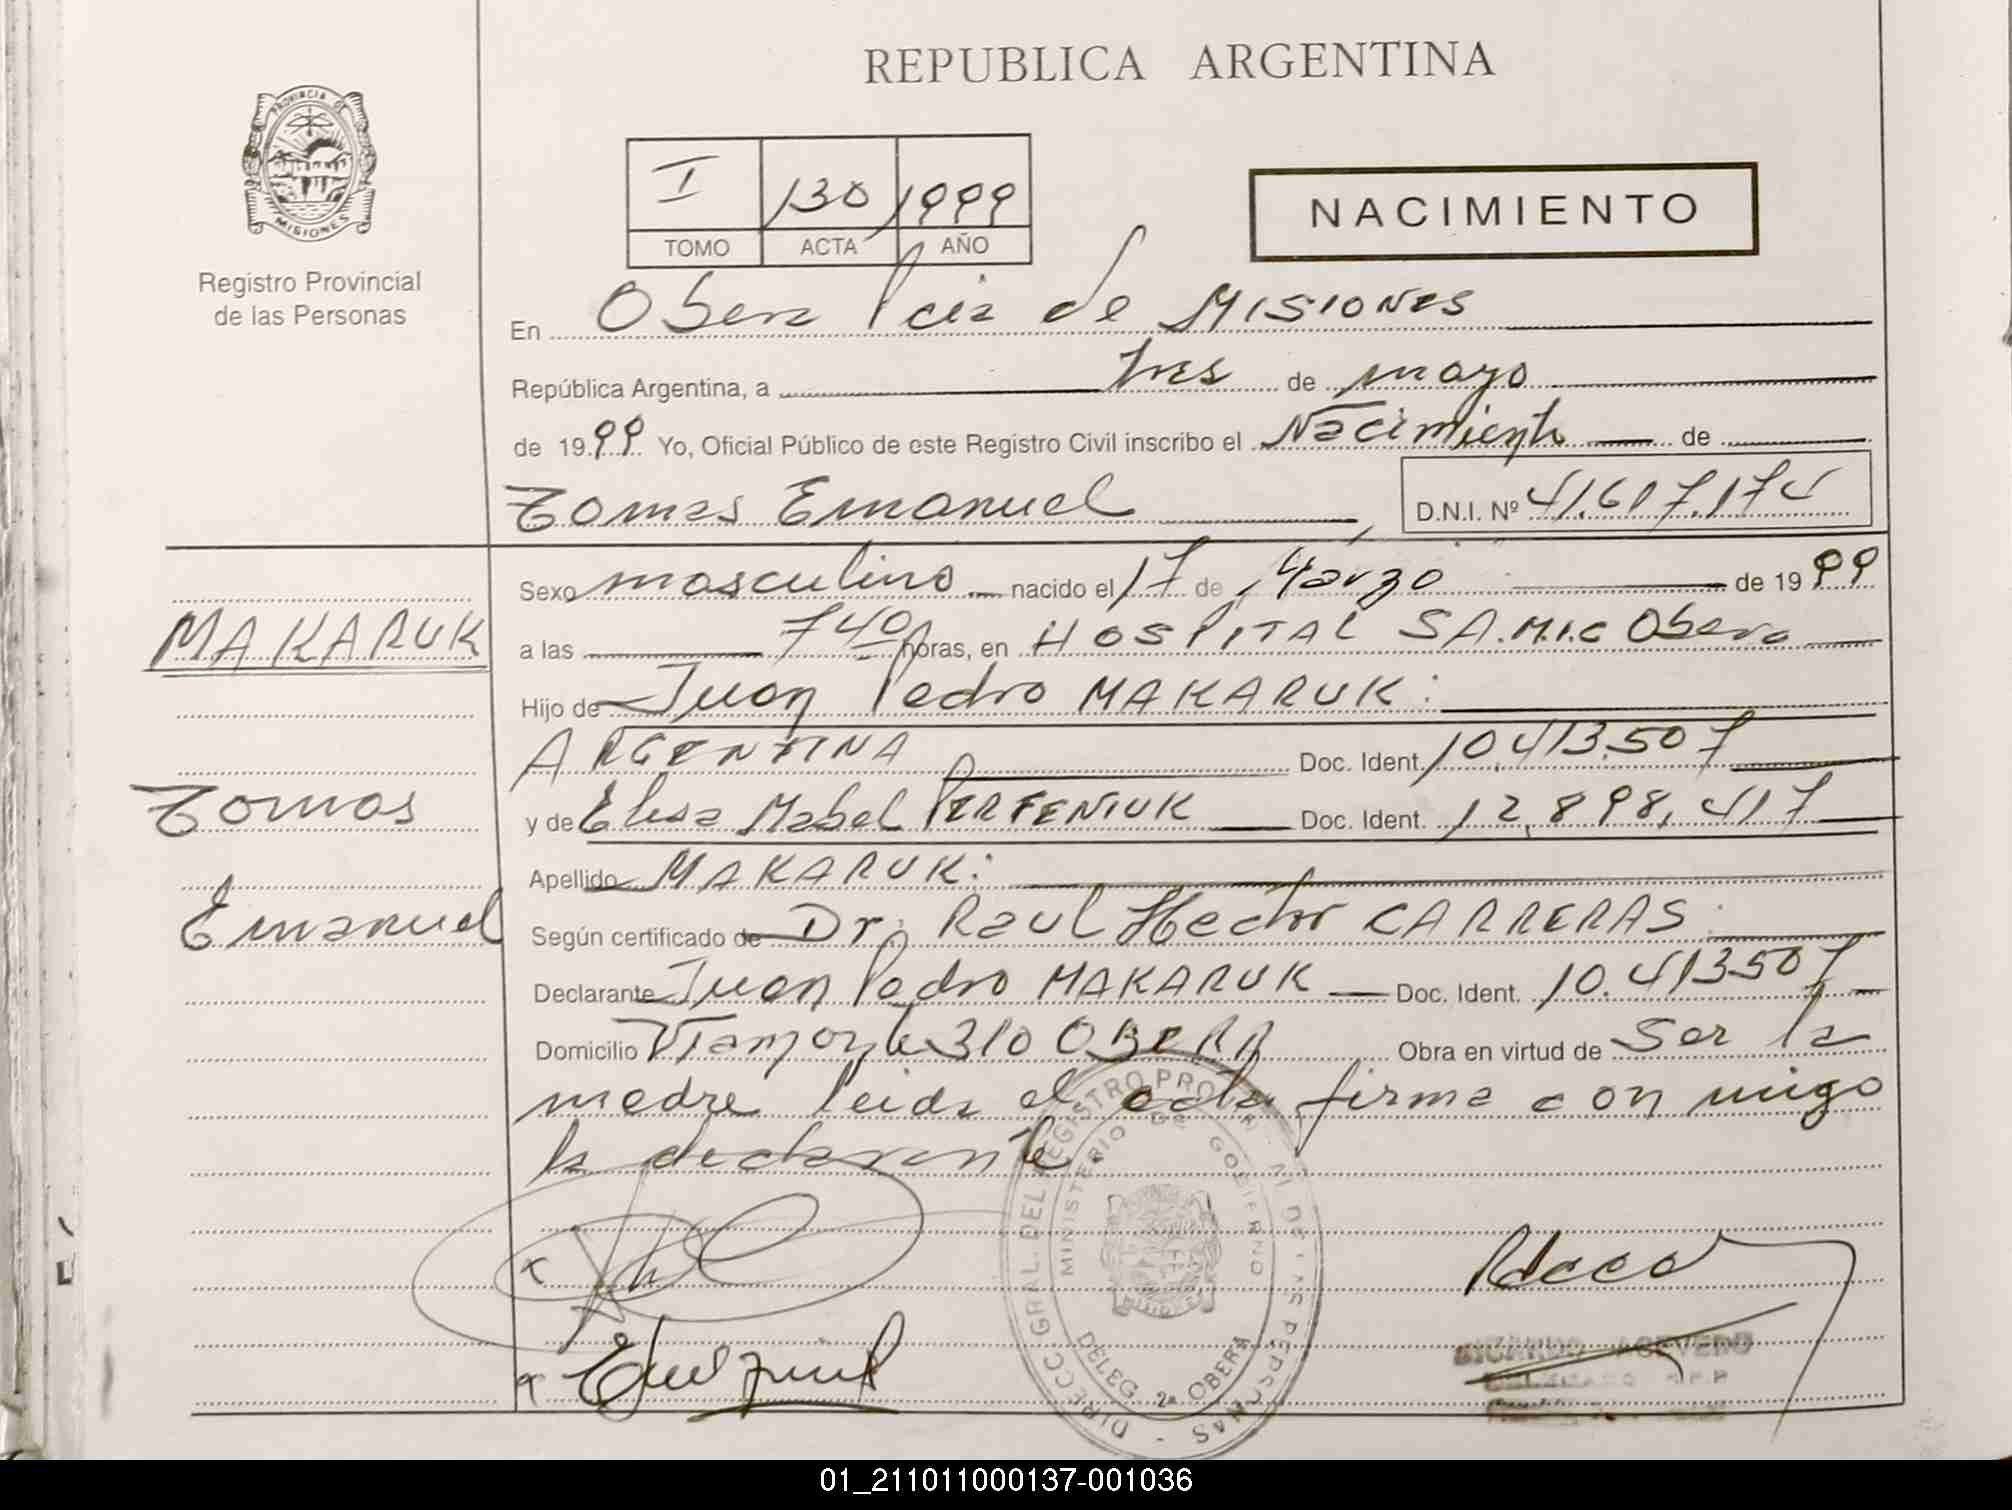 REPUBLICA ARGENTINA
PROVINCIA DE
MISIONES
Registro Provincial
de las Personas
I 130 1999
TOMO ACTA AÑO
NACIMIENTO
En Obera Pcia de MISIONES
República Argentina, a tres de mayo
de 1999 Yo, Oficial Público de este Registro Civil inscribo el Nacimiento de
Tomas Emanuel, D.N.I. Nº 41.617.174
Sexo masculino nacido el 17 de Marzo de 1999
MAKARUK
a las 7 40 horas, en HOSPITAL SA.M.I.C Obera
Hijo de Juan Pedro MAKARUK:
ARGENTINA Doc. Ident. 10.413.507
Tomas
y de Elisa Mabel PERFENIUK Doc. Ident. 12.898.417
Apellido MAKARUK:
Emanuel
Según certificado de Dr. Raul Hector CARRERAS:
Declarante Juan Pedro MAKARUK Doc. Ident. 10.413507
Domicilio Viamonte 310 OBERA Obra en virtud de Ser la
madre leida el acta firma con migo
la declarante
DIRECC. GRAL. DEL REGISTRO PROV. DE LAS PERSONAS
MINISTERIO DE GOBIERNO
DELEG. 2ª OBERÁ
RICARDO ACEVEDO
01_211011000137-001036